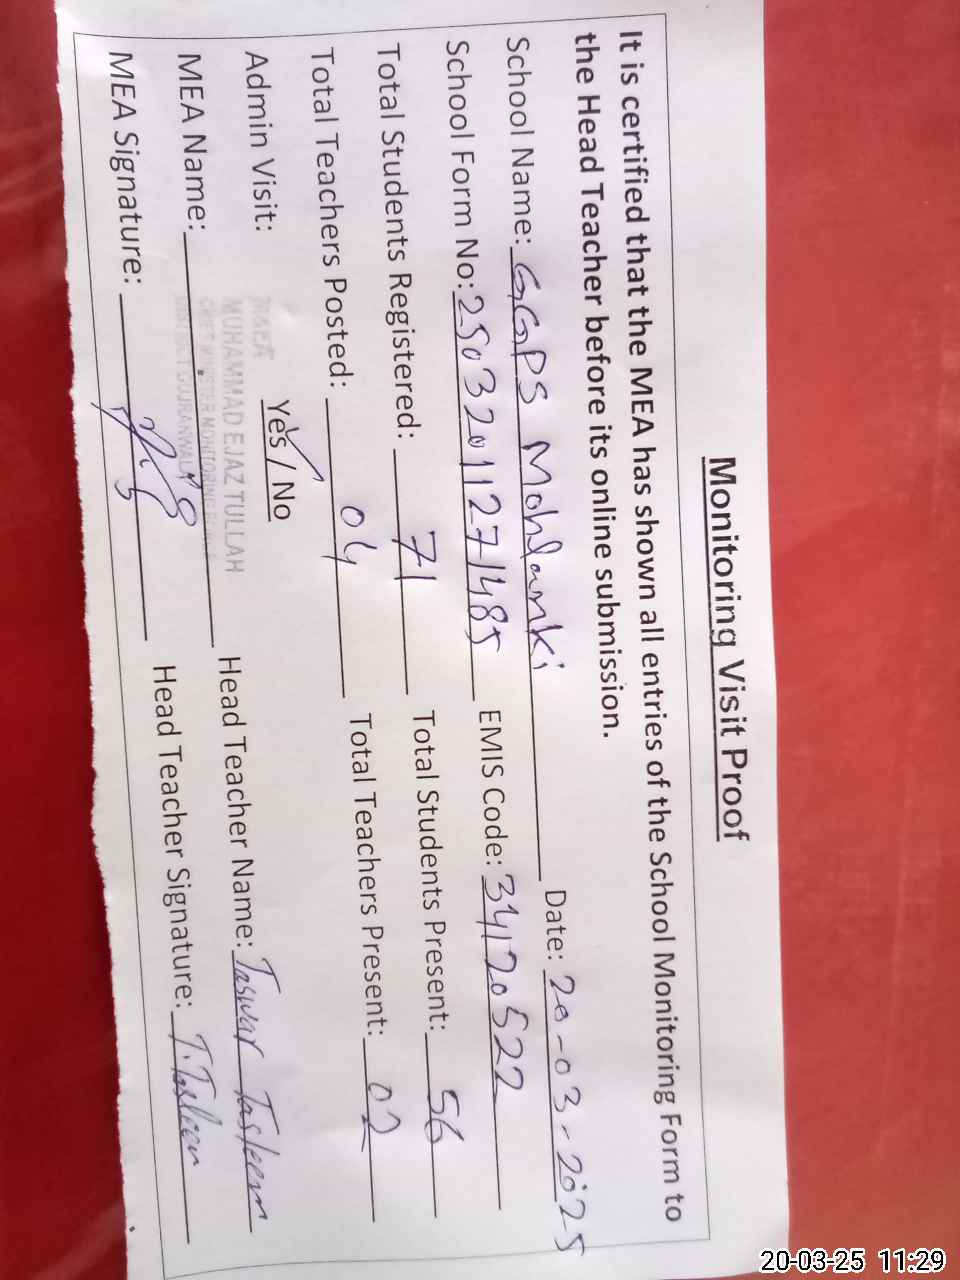 Monitoring Visit Proof
It is certified that the MEA has shown all entries of the School Monitoring Form to
the Head Teacher before its online submission.
School Name: GGPS Mohlanki Date: 20-03-2025
School Form No: 25032011271485 EMIS Code: 34120522
Total Students Registered: 71 Total Students Present: 56
Total Teachers Posted: 04 Total Teachers Present: 02
Admin Visit: Yes / No
MEA Name: Head Teacher Name: Taswar Tasleem
MUHAMMAD EJAZ TULLAH
CHIEF MINISTER MONITORING
DISTRICT GUJRANWALA
MEA Signature: Head Teacher Signature: T.Tasleem
20-03-25 11:29